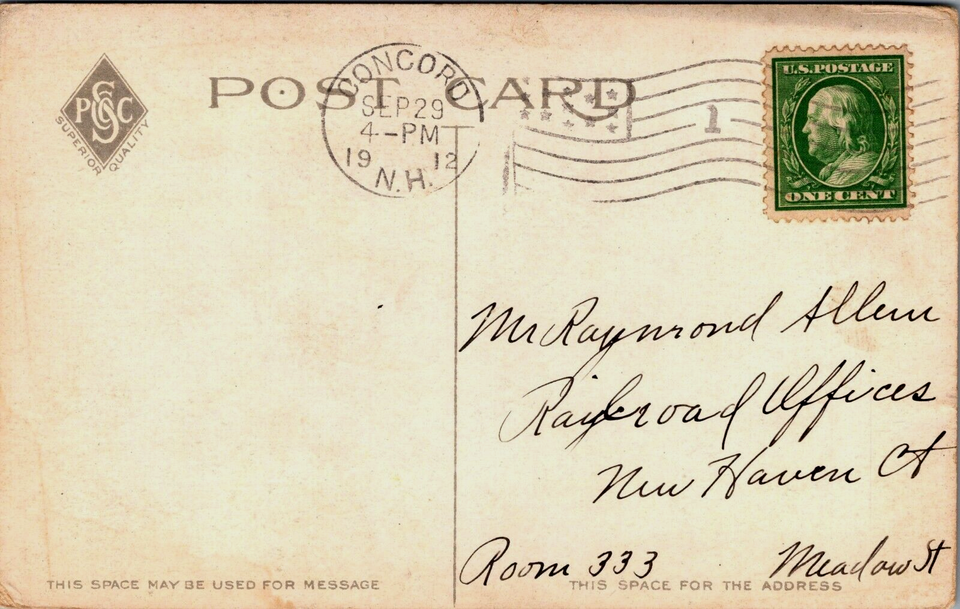 POST CARD
PCSC
SUPERIOR QUALITY
CONCORD
SEP 29
4-PM
19 12
N.H.
1
U.S. POSTAGE
ONE CENT
Mr Raymond Allen
Railroad Offices
New Haven Ct
Room 333 Meadow St
THIS SPACE MAY BE USED FOR MESSAGE
THIS SPACE FOR THE ADDRESS